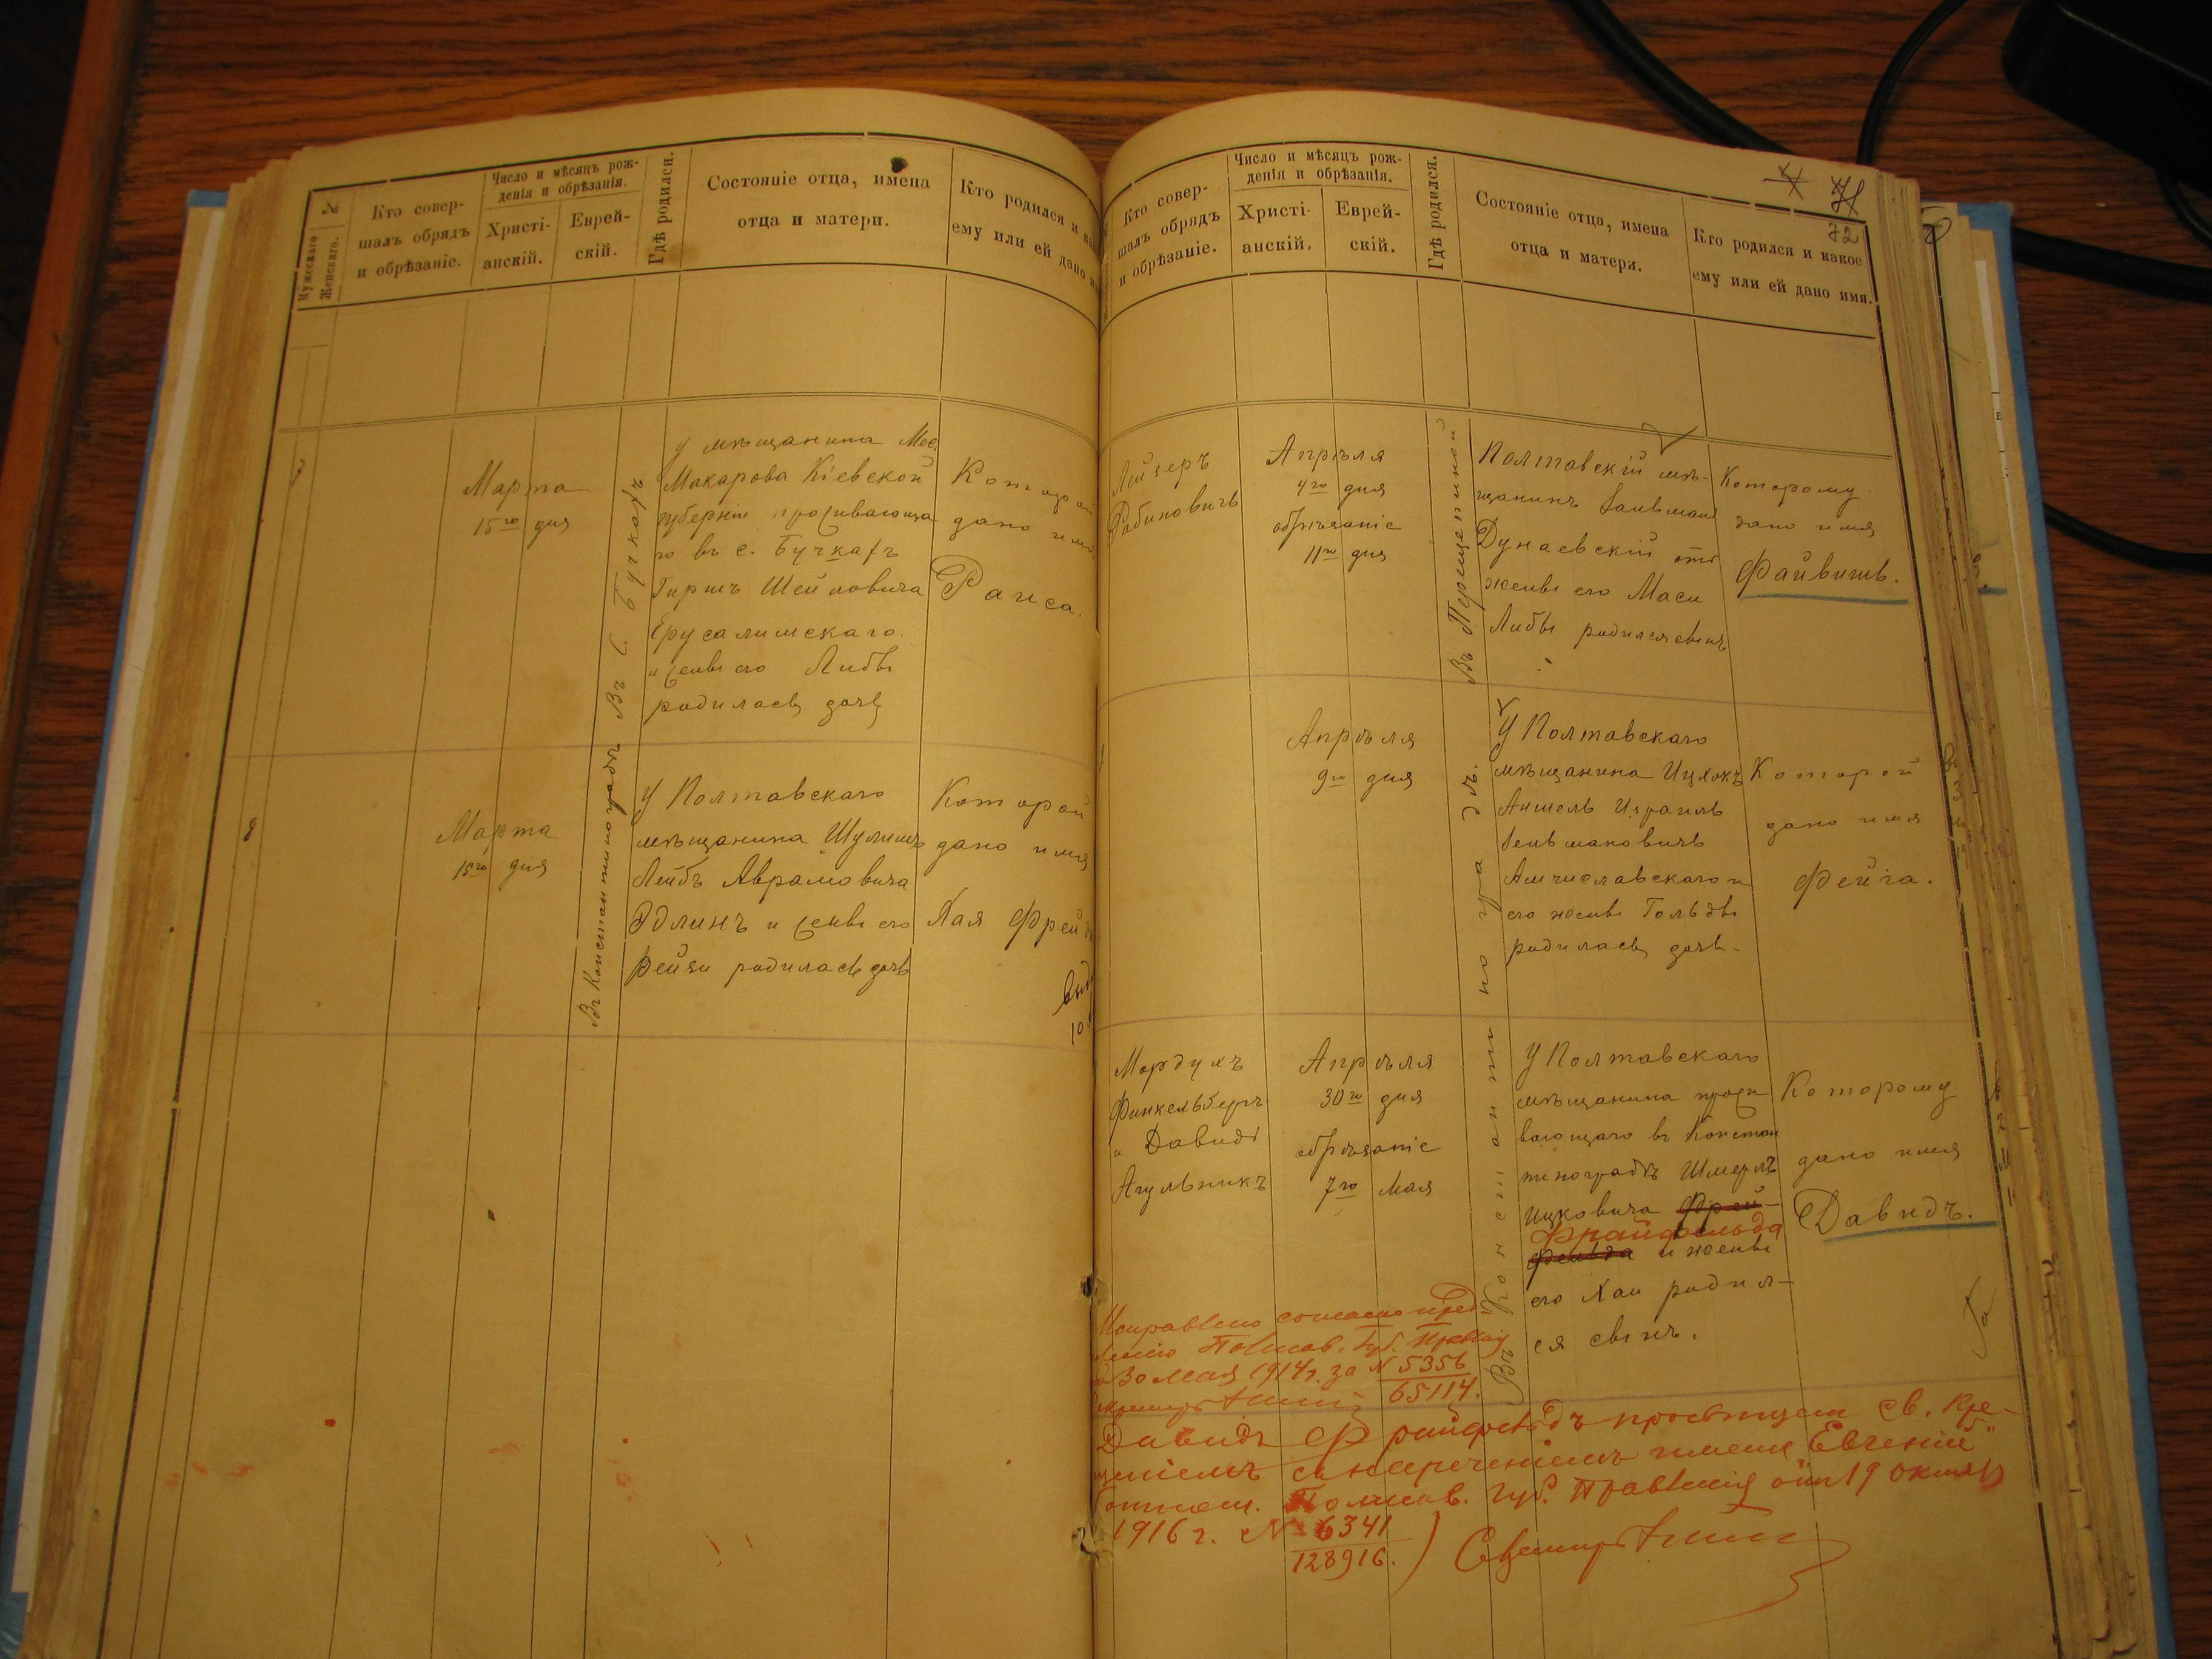 №
Мужескаго
Женскаго.
Кто совер-
шалъ обрядъ
и обрѣзаніе.
Число и мѣсяцъ рож-
денія и обрѣзанія.
Христі-
анскій.
Еврей-
скій.
Гдѣ родился.
Состояніе отца, имена
отца и матери.
Кто родился и
ему или ей дано
7
Марта
15го дня
Въ с. Бучкахъ
У мѣщанина Мес.
Макарова Кіевской
губерніи проживающа
го въ с. Бучкахъ
Гиршъ
Ерусалимскаго
и жены его Либы
родилась дочь
Которой
дано имя
Раиса.
8
Марта
15го дня
Въ Константиноградѣ
У Полтавскаго
мѣщанина
Лейбъ Аврамовича
Эдлинъ и жены его
Рейзи родилась дочь
Которой
дано имя
Хая Фрейда
Кто совер-
шалъ обрядъ
и обрѣзаніе.
Число и мѣсяцъ рож-
денія и обрѣзанія.
Христі-
анскій.
Еврей-
скій.
Гдѣ родился.
Состояніе отца, имена
отца и матери.
Кто родился и какое
ему или ей дано имя.
72
Лейзеръ
Рабиновичъ
Апрѣля
4го дня
обрѣзаніе
11го дня
Въ Перещепиной
Полтавскій мѣ-
щанинъ
Дунаевскій отъ
жены его Маси
Либы родился сынъ
Которому
дано имя
Файвишъ.
Апрѣля
9го дня
Въ Константиноградѣ.
У Полтавскаго
мѣщанина Ицхокъ
Аншель Израиль
Амчиславскаго и
его жены Гольды
родилась дочь.
Которой
дано имя
Фейга.
Мордухъ
Финкельбергъ
и Давидъ
Агульникъ
Апрѣля
30го дня
обрѣзаніе
7го Мая
У Полтавскаго
мѣщанина прожи
вающаго въ Констан
тиноградѣ Шмерлъ
Ицковича Фрей-
Фрайфельда
фельда и жены
его Хаи родил-
ся сынъ.
Которому
дано имя
Давидъ.
Исправлено согласно пред
Полтав. Губ. Правлен
30 Мая 1914 г. за № 5356
65114.
Давидъ Фрайфельдъ просвѣщен св. Кре-
щеніемъ съ нареченіемъ имени „Евгеній"
Полтав. Губ. Правленія отъ 19 октября
1916 г. № 6341
128916.)